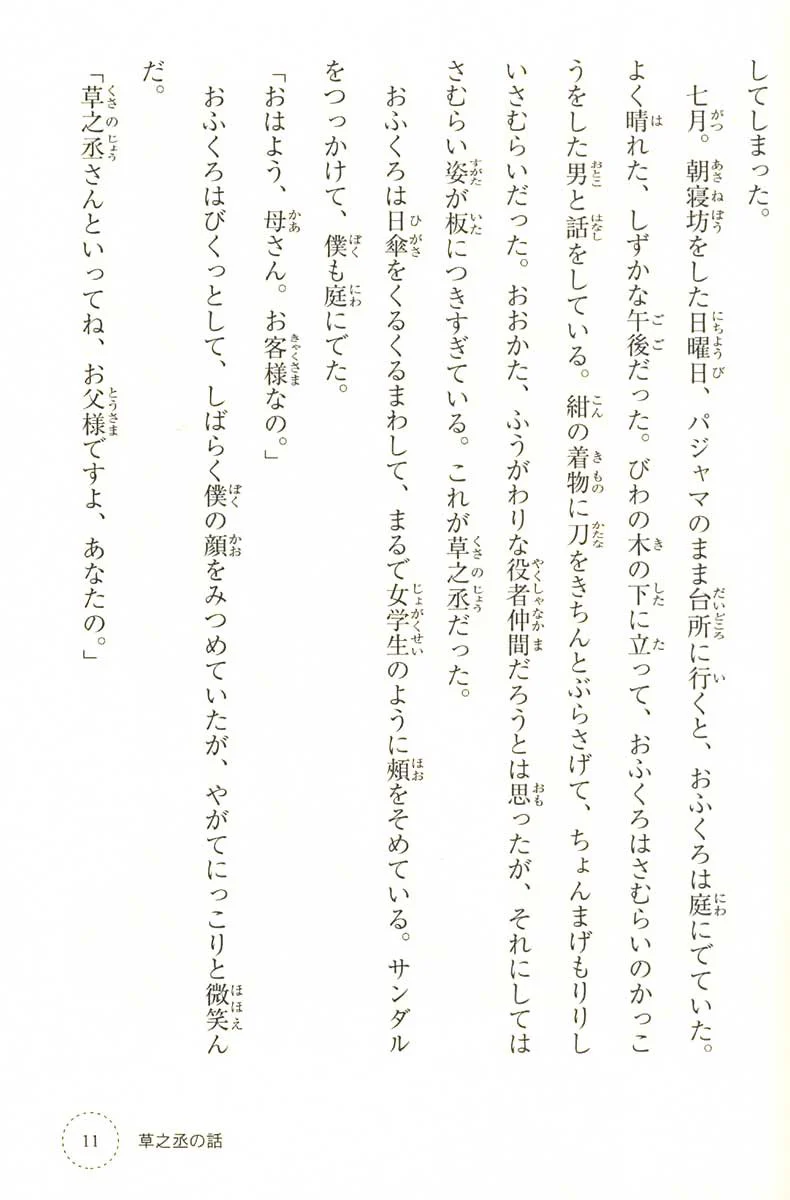 してしまった。
七月。朝寝坊をした日曜日、パジャマのまま台所に行くと、おふくろは庭にでていた。
よく晴れた、しずかな午後だった。びわの木の下に立って、おふくろはさむらいのかっこ
うをした男と話をしている。紺の着物に刀をきちんとぶらさげて、ちょんまげもりりし
いさむらいだった。おおかた、ふうがわりな役者仲間だろうとは思ったが、それにしては
さむらい姿が板につきすぎている。これが草之丞だった。
おふくろは日傘をくるくるまわして、まるで女学生のように頰をそめている。サンダル
をつっかけて、僕も庭にでた。
「おはよう、母さん。お客様なの。」
おふくろはびくっとして、しばらく僕の顔をみつめていたが、やがてにっこりと微笑ん
だ。
「草之丞さんといってね、お父様ですよ、あなたの。」
11 草之丞の話